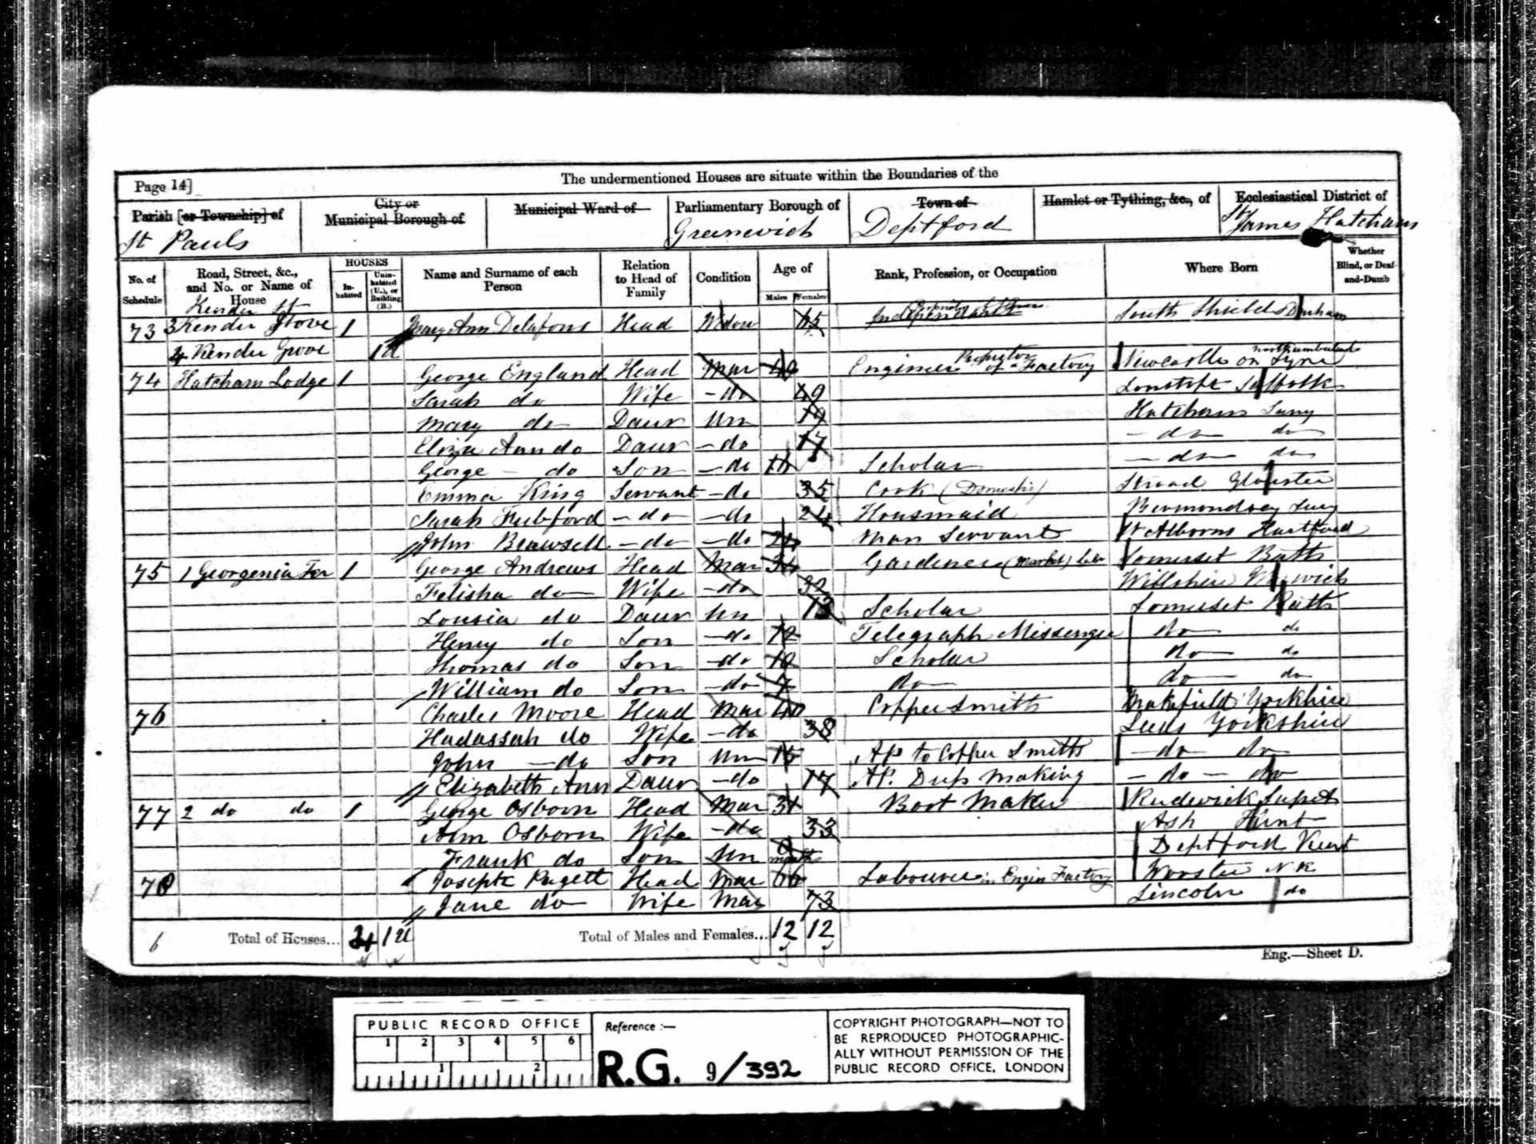 The undermentioned Houses are situate within the Boundaries of the
Page 14]
Parish [or Township] of St Pauls
City or Municipal Borough of
Municipal Ward of
Parliamentary Borough of Greenwich
Town of Deptford
Hamlet or Tything, &c., of
Ecclesiastical District of St James Hatcham
No. of Schedule
Road, Street, &c., and No. or Name of House
HOUSES
Inhabited
Uninhabited (U.), or Building (B.)
Name and Surname of each Person
Relation to Head of Family
Condition
Age of
Males
Females
Rank, Profession, or Occupation
Where Born
Whether Blind, or Deaf-and-Dumb
Kender St
73 3 Kender Grove 1 Mary Ann Delafons Head Widow 65 South Shields Durham
4 Kender Grove 1U
74 Hatcham Lodge 1 George England Head Mar 49 Engineer Proprietor of Factory Newcastle on Tyne Northumberland
Sarah do Wife - do 49 Suffolk
Mary do Daur Un 19 Hatcham Surry
Eliza Ann do Daur - do 17 - do do
George - do Son - do Scholar - do do
Emma King Servant - do 35 Cook (Domestic) Stroud Gloster
Sarah - do - do 24 Housmaid Bermondsey Surry
John - do - do Man Servant St Alborns Hartford
75 1 Georgenia Ter 1 George Andrews Head Mar 34 Gardener (Market) Somerset Bath
Felisha do Wife - do 32 Willshire
Lousia do Daur Un 13 Scholar Somerset Bath
Henry do Son - do 12 Telegraph Messenger do do
Thomas do Son - do 10 Scholar do do
William do Son - do 7 do do do
76 Charles Moore Head Mar 40 Coppersmith Wakefield Yorkshire
Hadassah do Wife - do 38 Leeds Yorkshire
John - do Son Un Ap to Copper Smith - do do
Elizabeth Ann Daur - do 17 Ap. Dress Making - do - do
77 2 do do 1 George Osborn Head Mar 31 Boot Maker Rudewick
Ann Osborn Wife - do 33 Ash Kent
Frank do Son Un months Deptford Kent
78 Joseph Pagett Head Mar 66 Labourer in Engin Factory Worster N K
Jane do Wife Mar 73 Lincoln do
6 Total of Houses... 4 1U Total of Males and Females... 12 12
Eng.—Sheet D.
PUBLIC RECORD OFFICE
1 2 3 4 5 6
1 2
Reference :—
R.G. 9/392
COPYRIGHT PHOTOGRAPH—NOT TO
BE REPRODUCED PHOTOGRAPHIC-
ALLY WITHOUT PERMISSION OF THE
PUBLIC RECORD OFFICE, LONDON